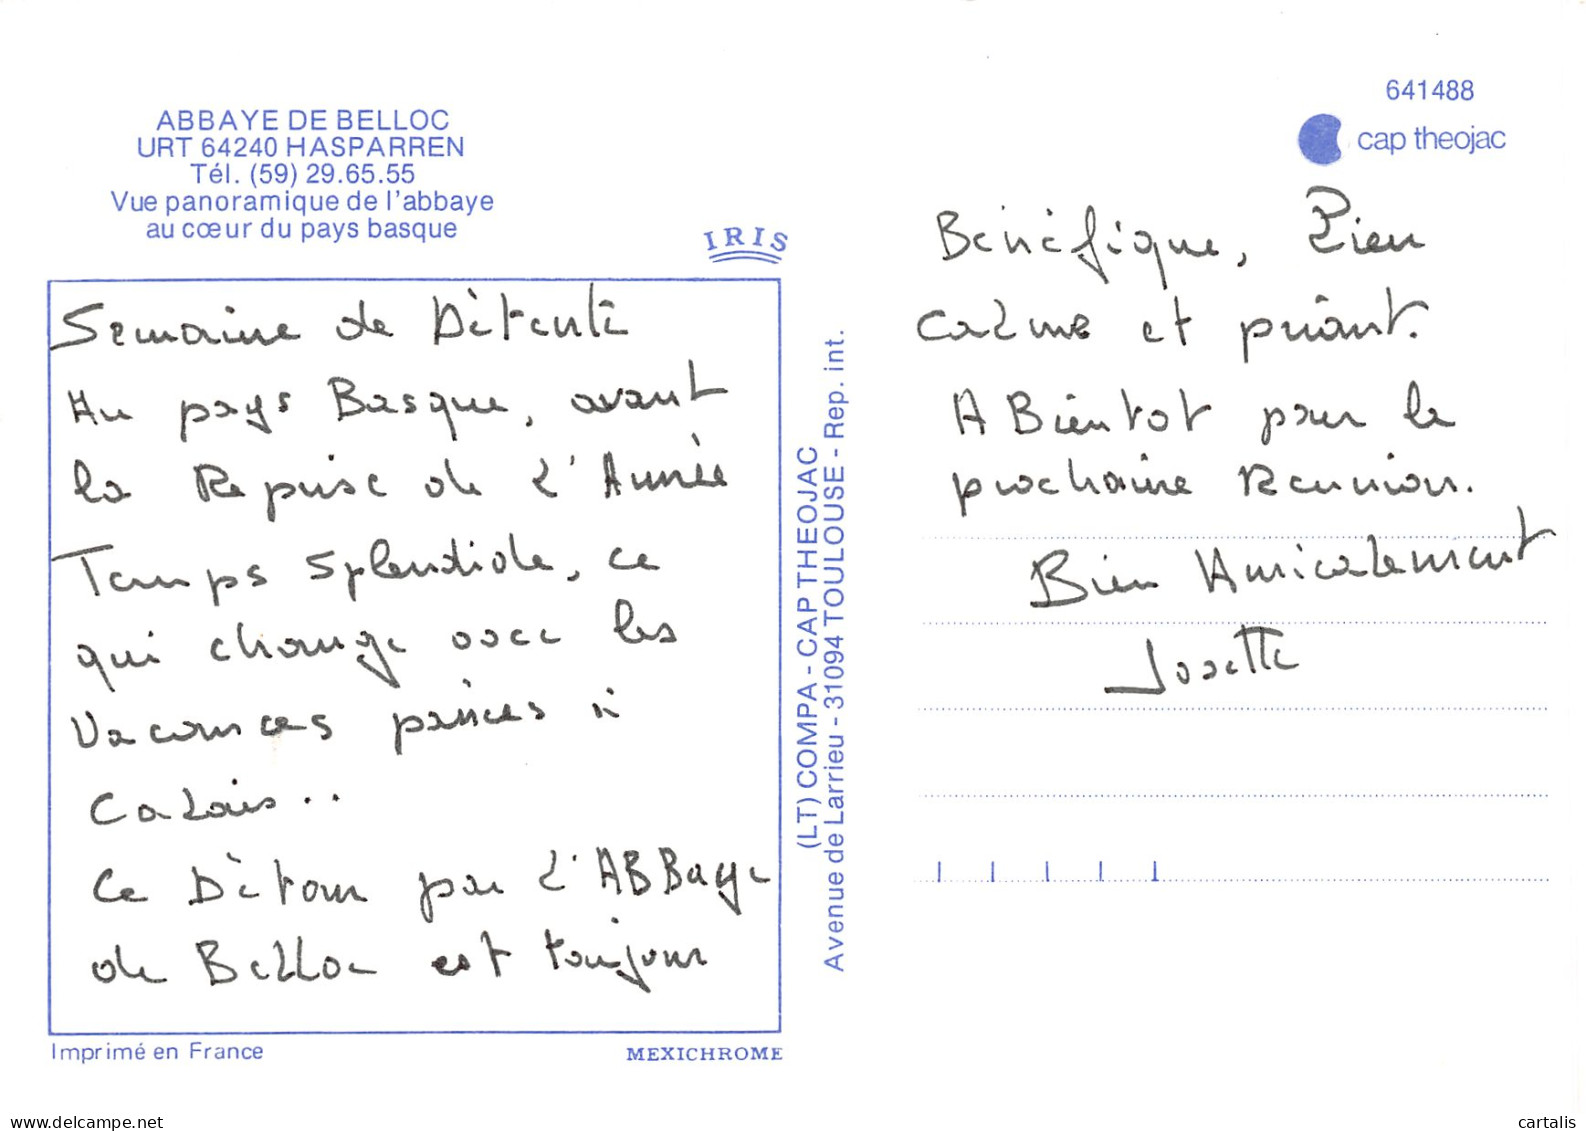 ABBAYE DE BELLOC
URT 64240 HASPARREN
Tél. (59) 29.65.55
Vue panoramique de l'abbaye
au cœur du pays basque
IRIS
Semaine de Détente
Au pays Basque, avant
la Reprise de l'Année
Temps splendide, ce
qui change avec les
Vacances passées à
Calais..
Ce Détour par l'ABBaye
de Belloc est toujours
Imprimé en France
MEXICHROME
(LT) COMPA - CAP THEOJAC
Avenue de Larrieu - 31094 TOULOUSE - Rep. int.
641488
cap theojac
Bénéfique, Lieu
Calme et priant.
A Bientot pour la
prochaine Reunion.
Bien Amicalement
Josette
cartalis